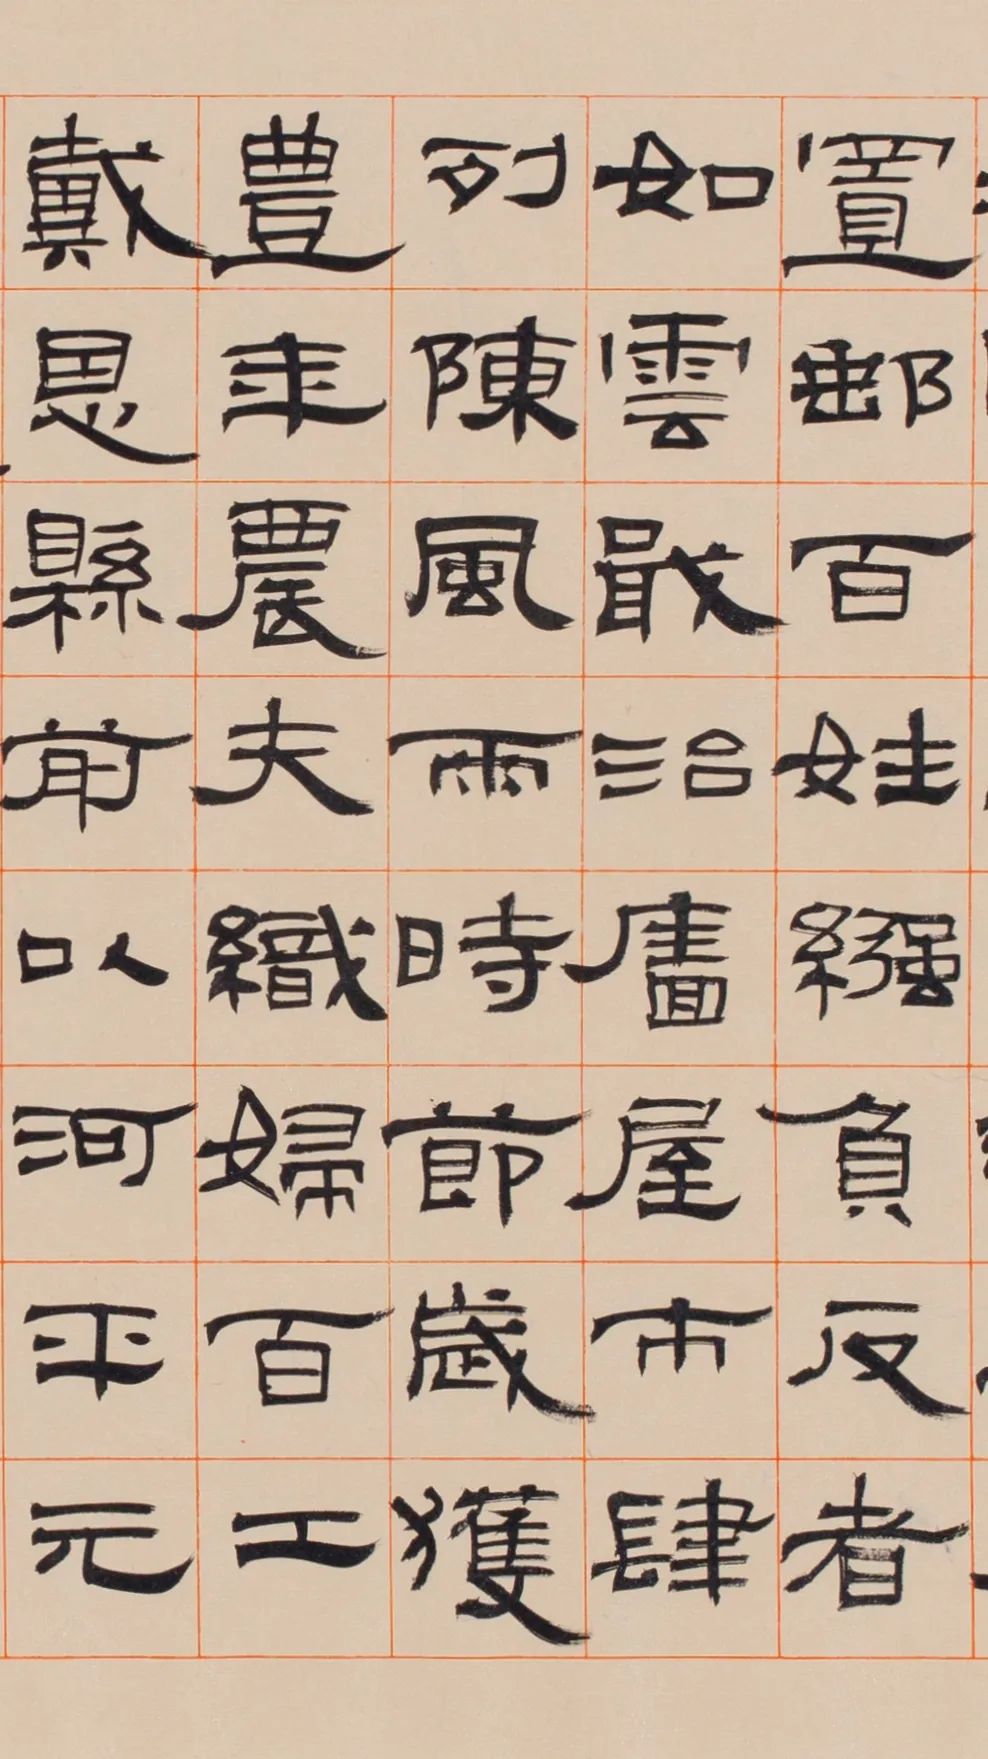 置郵百姓繦負反者
如雲戢治廧屋市肆
列陳風雨時節歲獲
豊年農夫織婦百工
戴恩縣前以河平元